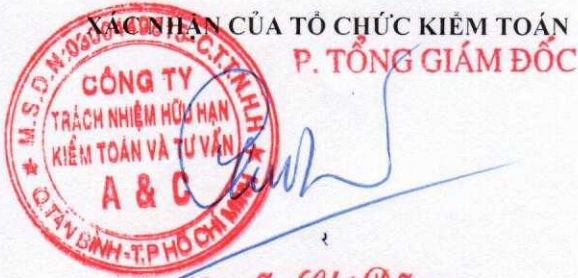 XÁC NHẬN CỦA TỔ CHỨC KIỂM TOÁN
P. TỔNG GIÁM ĐỐC
M.S.D.N:
C.T.T.N.H.H
CÔNG TY
TRÁCH NHIỆM HỮU HẠN
KIỂM TOÁN VÀ TƯ VẤN
A & C
Q.TÂN BÌNH-T.P HỒ CHÍ MINH